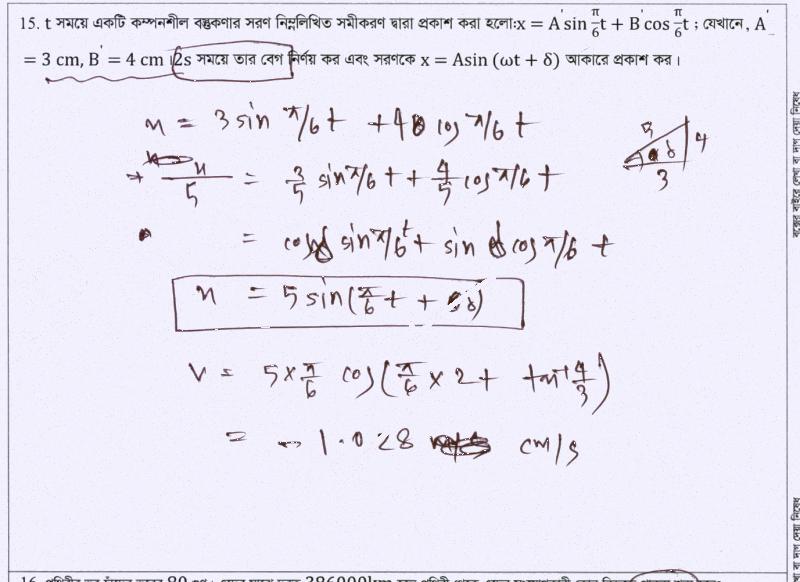 15. t সময়ে একটি কম্পনশীল বস্তুকণার সরণ নিম্নলিখিত সমীকরণ দ্বারা প্রকাশ করা হলো:x = A' sin π/6 t + B' cos π/6 t ; যেখানে, A'
= 3 cm, B' = 4 cm । 2s সময়ে তার বেগ নির্ণয় কর এবং সরণকে x = Asin (ωt + δ) আকারে প্রকাশ কর ।
x = 3 sin π/6 t + 4 cos π/6 t
5 4
δ
3
→ x/5 = 3/5 sin π/6 t + 4/5 cos π/6 t
= cos δ sin π/6 t + sin δ cos π/6 t
x = 5 sin (π/6 t + δ)
v = 5 × π/6 cos (π/6 × 2 + tan⁻¹ 4/3)
= - 1.028 cm/s